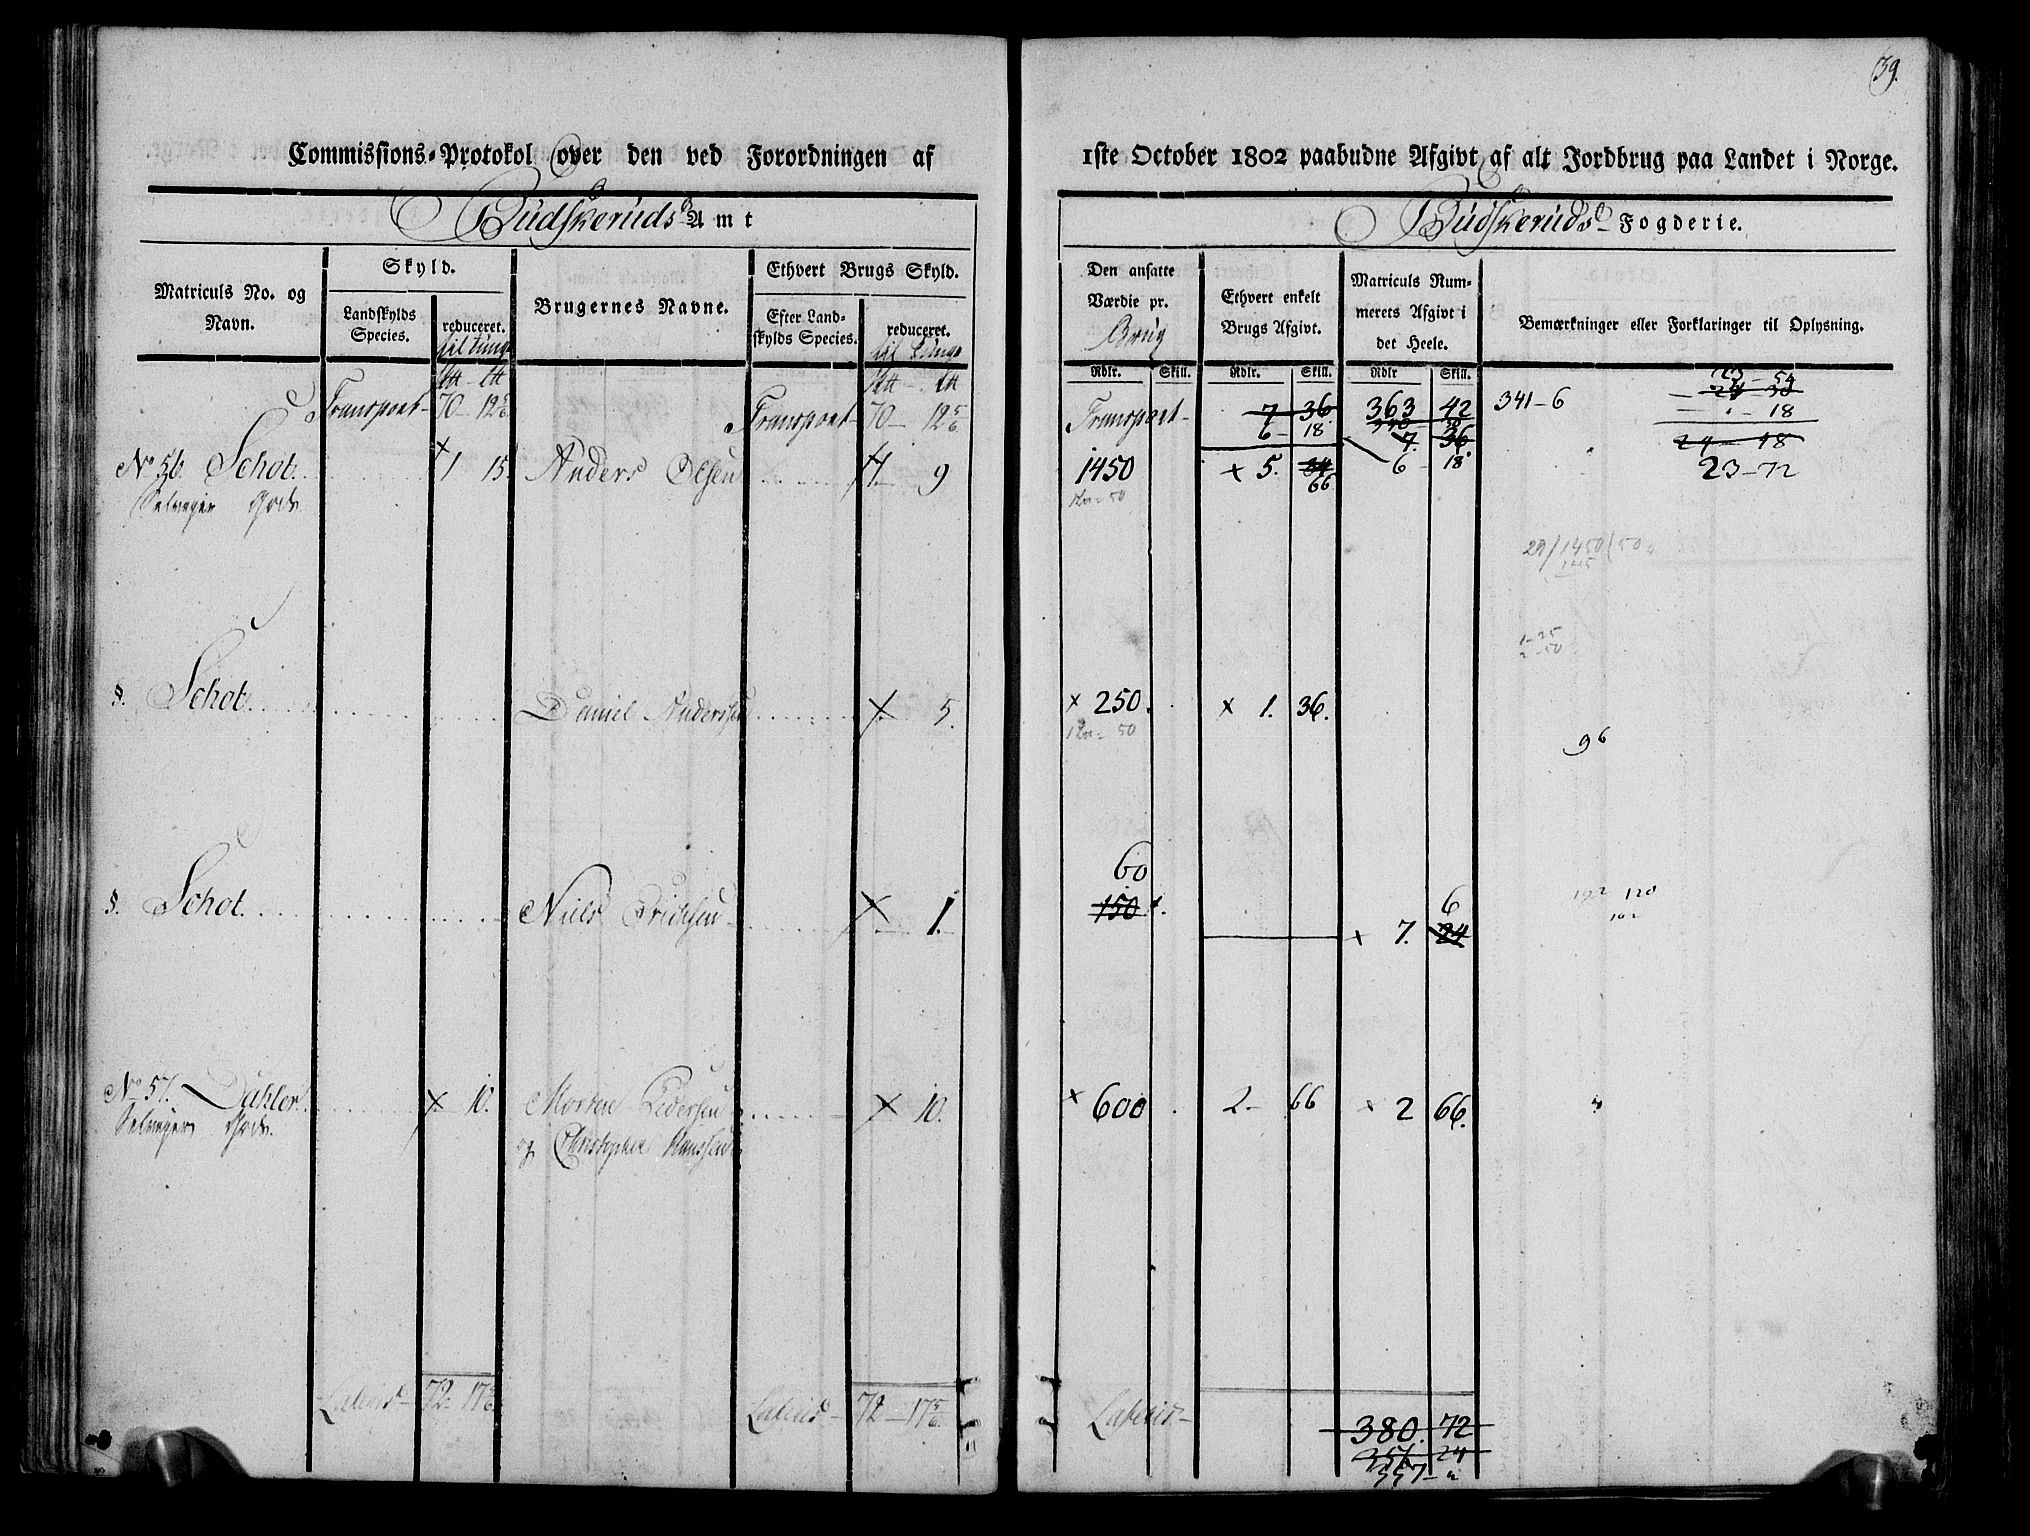 39.
Commissions-Protokol over den ved Forordningen af
1ste October 1802 paabudne Afgivt af alt Jordbrug paa Landet i Norge.
Budskeruds Amt
Budskeruds Fogderie.
Matriculs No. og Navn.
Skyld.
Landskylds Species.
reduceret.
til Tunge
Brugernes Navne.
Ethvert Brugs Skyld.
Efter Landskylds Species.
reduceret.
til Tunge
Den ansatte Værdie pr.
Brug
Ethvert enkelt Brugs Afgivt.
Matriculs Nummerets Afgivt i det Heele.
Bemærkninger eller Forklaringer til Oplysning.
Rdlr. Skill. Rdlr. Skill. Rdlr Skill.
Transport 70 12 5/6 Transport 70 12 5/6 Transport 7 36 363 42 341-6
6 18
7. 36
23-54
24-30
18
24-48
23-72
No 56 Schot 1 15. Anders Olsen 1. 9 1450 x 5. 66 6 18
Selveyer Gods
50
29/1450(50
145
1-25
2-50
§. Schot Daniel Anderssen x 5. x 250. x 1. 36.
50
96
§. Schot Niels Erichsen x 1. 60
150 x 7. 6
24
192 120
102
No 57. Dahler x 10. Morten Pedersen x 10. x 600 2- 66 x 2 66.
Selveyer Gods. og Christopher Hanssen
Lateris 72- 17 5/6 Lateris 72- 17 5/6 Lateris 380. 72
357 24
357-